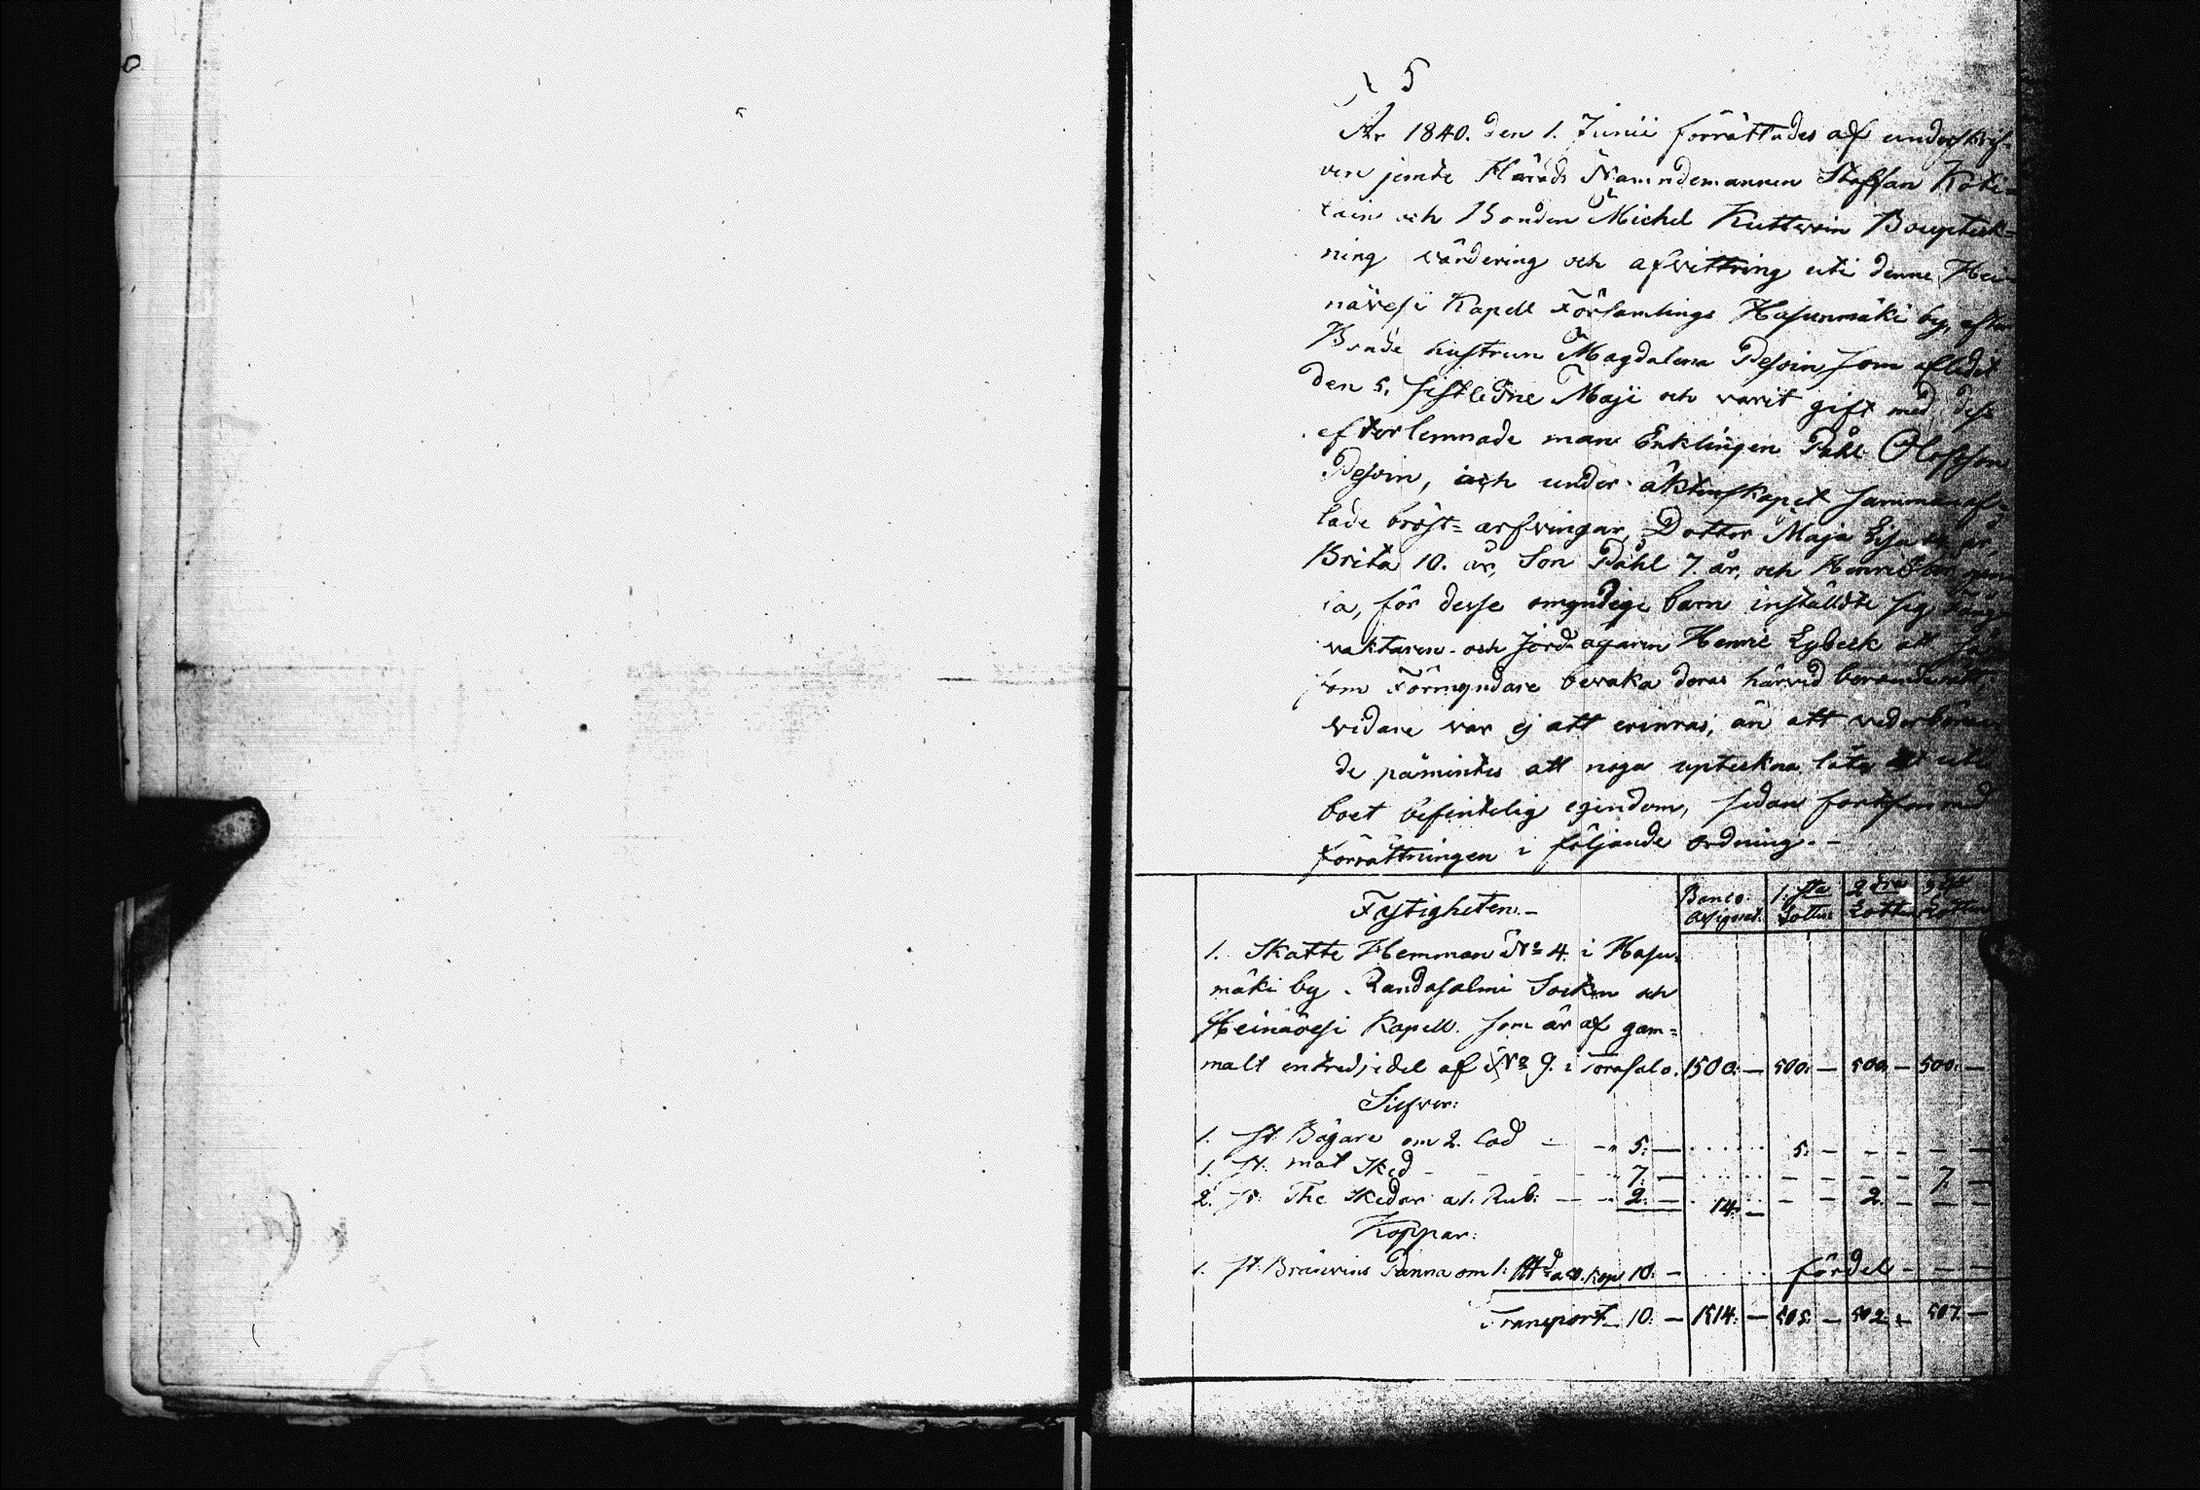 5
År 1840. den 1. Junii förrättades af underskrif-
ven jemte Härads Nämndemannen Staffan Koti-
lain och Bonden Michel Kuttvoin Bouptek-
ning värdering och afvittring uti denne Hei-
nävesi Kapell Församlings Hasunmäki by, efter
Bonde hustrun Magdalena Pesoin, som aflidit
den 5. sistledne Maji och varit gift med dess
efterlemnade man Enklingen Påhl Olofsson
Pesoin, och under äktenskapet sammanaf-
lade bröst-arfvingar, Dotter Maja Lisa år,
Brita 10. år, Son Påhl 7. år, och Henric
ia, för desse omyndige barn inställdte sig
vaktaren och Jordägaren Henric Lybeck att
som Förmyndare bevaka deras härvid beroende rätt,
vidare var ej att erinras, än att vederböran-
de påmintes att noga upteckna låta uti
boet befintelig egendom, sedan fortfors med
förrättningen i följande ordning.-
Fastigheten.- Banco Assignat. 1:sta Lotten 2dra Lotten 3die Lotten
1. Skatte Hemman No 4. i Hasu-
mäki by. Randasalmi Socken och
Heinävesi Kapell. som är af gam-
malt entredjedel af No 9. i Torasalo. 1500:— 500:— 500:— 500:—
Silfver:
1. st. Bägare om 2. lod - - 5:— 5:— - - - -
1. st. mat Sked - - - - 7:— - - - - 7:—
2. st. The Skedar a 1. Rub: - - 2:— 14:— - - 2:— - -
Koppar:
1. st. Bränvins Panna om 1: 10:— fördel - - -
Transport 10:— 1514:— 505:— 502:— 507:—